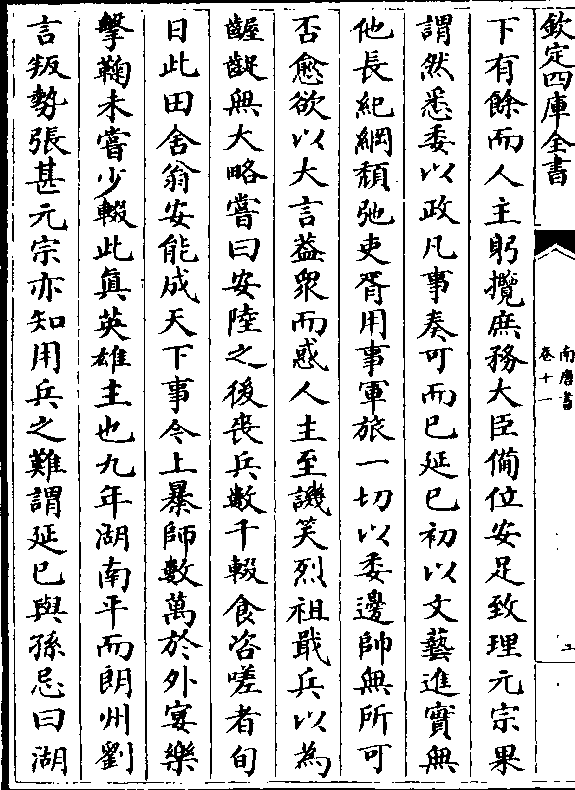 欽定四庫全書
南唐書
卷十一
下有餘而人主躬攬庶務大臣備位安足致理元宗果
謂然悉委以政凡事奏可而已延巳初以文藝進實無
他長紀綱頽弛吏胥用事軍旅一切以委邊帥無所可
否愈欲以大言葢衆而惑人主至譏笑烈祖戢兵以為
齷齪無大略嘗曰安陸之後喪兵數千輟食咨嗟者旬
日此田舍翁安能成天下事今上暴師數萬於外宴樂
擊鞠未嘗少輟此真英雄主也九年湖南平而朗州劉
言叛勢張甚元宗亦知用兵之難謂延巳與孫忌曰湖